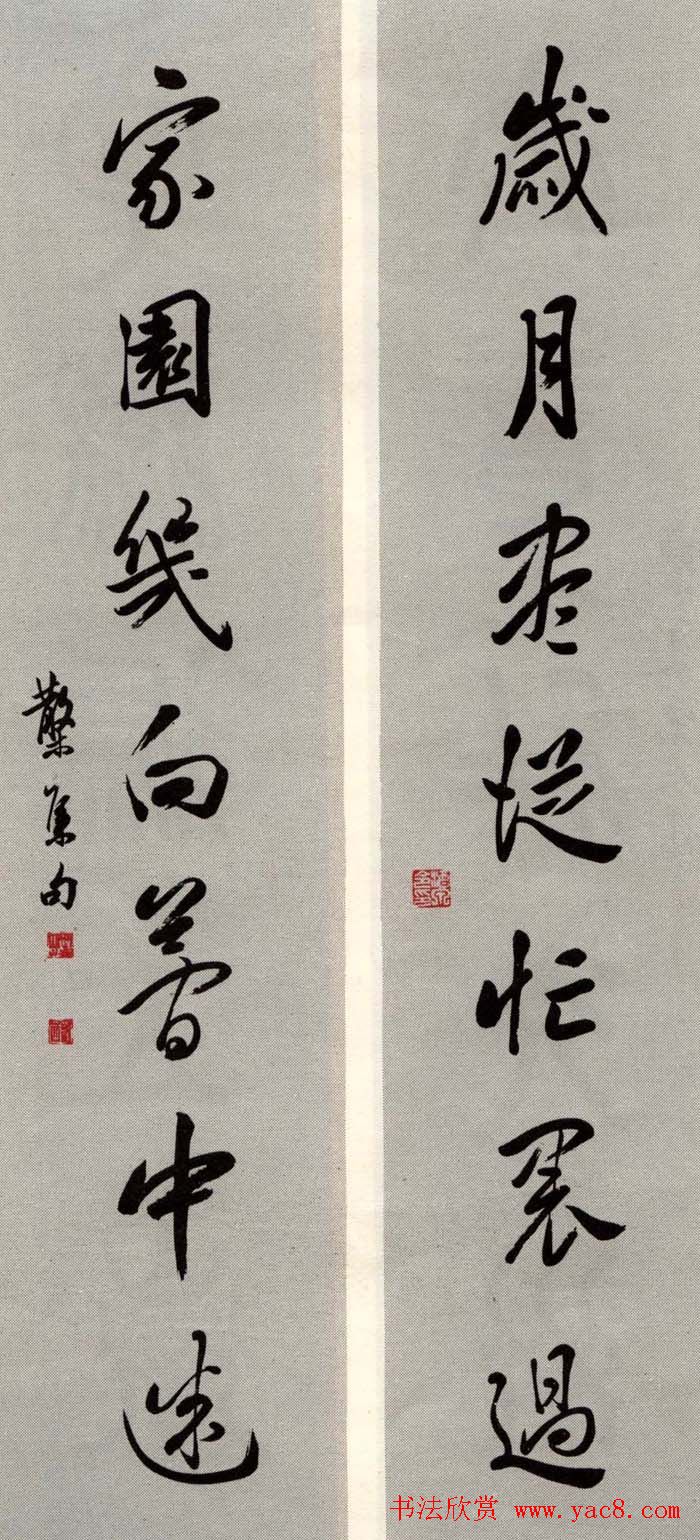 歲月盡從忙裏過
家園幾向夢中迷
集句
书法欣赏 www.yac8.com